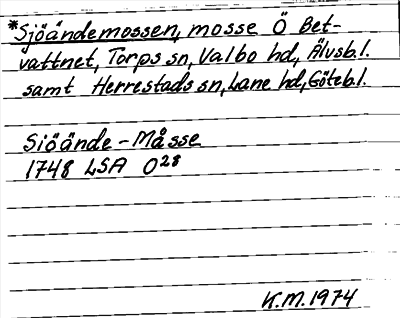 *Sjöändemossen, mosse Ö Bet-
vattnet, Torps sn, Valbo hd, Älvsb.l.
samt Herrestads sn, Lane hd, Göteb.l.
Siöände-Måsse
1748 LSA O28
K.M. 1974